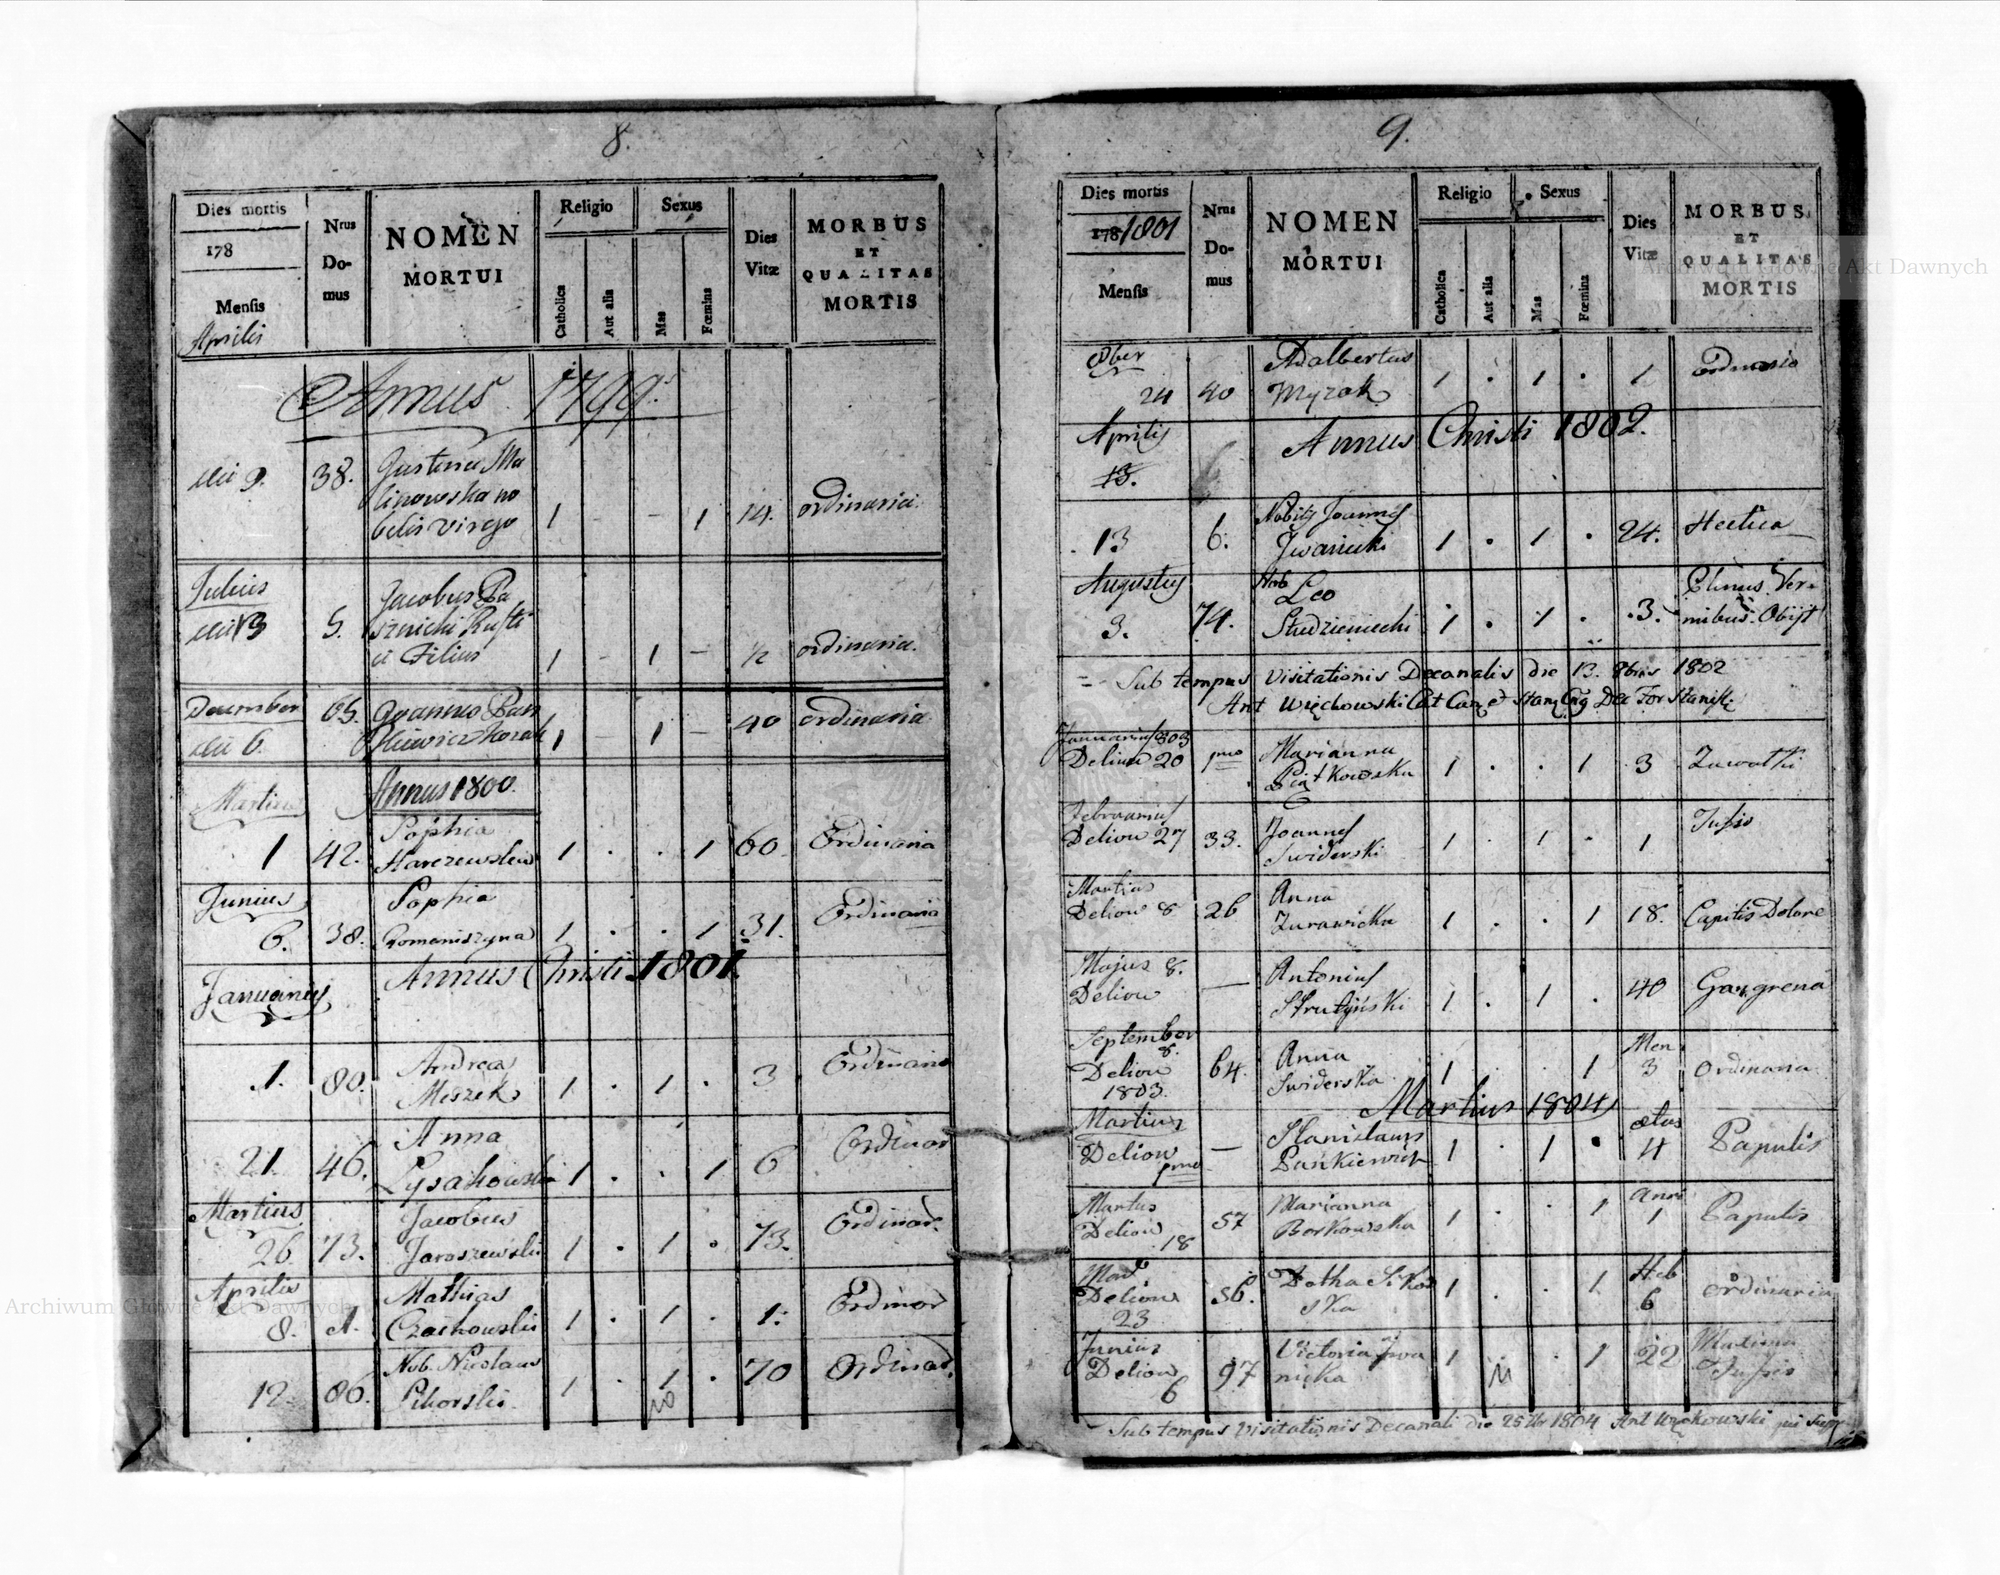 8.
Dies mortis
178
Mensis
Aprilis
Nrus
Do-
mus
NOMEN
MORTUI
Religio
Catholica
Aut alia
Sexus
Mas
Fœmina
Dies
Vitæ
MORBUS
ET
QUALITAS
MORTIS
Annus 1799.
die 9. 38. Justina Ma
linowska no
bilis virgo 1 - - 1 14. ordinaria.
Julius
die 13 5. Jacobus
Rusti
ci Filius 1 - 1 - ½ ordinaria.
December 65. Joannes
die 6. 1 - 1 - 40 ordinaria
Martius Annus 1800.
1 42. Sophia
1 . . 1 60 Ordinaria
Junius Sophia
6. 38. Romaniszyna 1 . . 1 31. Ordinaria
Annus Christi 1801.
Januarius
1. 80. Andreas
Meszek 1 . 1 . 3 Ordinaria
21. 46. Anna
Lysakowska 1 . . 1 6 Ordinar
Martius Jacobus
26 73. Jaroszewski 1 . 1 . 73. Ordinar.
Aprilis Mathias
8. 1. Czachowski 1 . 1 . 1. Ordinar
Nob. Nicolaus
12. 86. Sikorski 1 . 1 . 70 Ordinar.
9.
Dies mortis
178 1801
Mensis
Nrus
Do-
mus
NOMEN
MORTUI
Religio
Catholica
Aut alia
Sexus
Mas
Fœmina
Dies
Vitæ
MORBUS
ET
QUALITAS
MORTIS
8ber Adalbertus
24 40 Myzak 1 . 1 . 1 ordinario
Aprilis Annus Christi 1802.
13.
13 6. Nobilis Joannes
Iwanicki 1 . 1 . 24. Hectica
Augustus Nob Leo
3. 74. Studzieniecki 1 . 1 . 3. Ver-
mibus Obijt
Sub tempus Visitationis Decanalis die 13. 8bris 1802
Ant Więckowski
Januarius 803
Delion 20 1mo Marianna
Piątkowska 1 . . 1 3
Februarius
Delion 27 33. Joannes
Swiderski 1 . 1 . 1 Tussis
Martius
Delion 8 26 Anna
Zurawicka 1 . . 1 18. Capitis Dolore
Majus 8.
Delion — Antonius
Strutyński 1 . 1 . 40 Gangrena
September
8.
Delion 64. Anna
1803. Swiderska 1 . . 1 Men
3 Ordinaria
Martius 1804
Martius
Delion — Stanislaus
1mo Pankiewicz 1 . 1 . 4 Papulis
Martus
Delion 57 Marianna
18 Borkowska 1 . . 1 Anni
1 Papulis
Mart
Delion 56.
23 ska 1 . . 1 Heb
6 ordinaria
Junius
Delion 97 Victoria Iwa
6 nicka 1 . . 1 22
Sub tempus Visitationis Decanali die 25 1804 Ant Więckowski
Archiwum Główne Akt Dawnych
Archiwum Główne Akt Dawnych